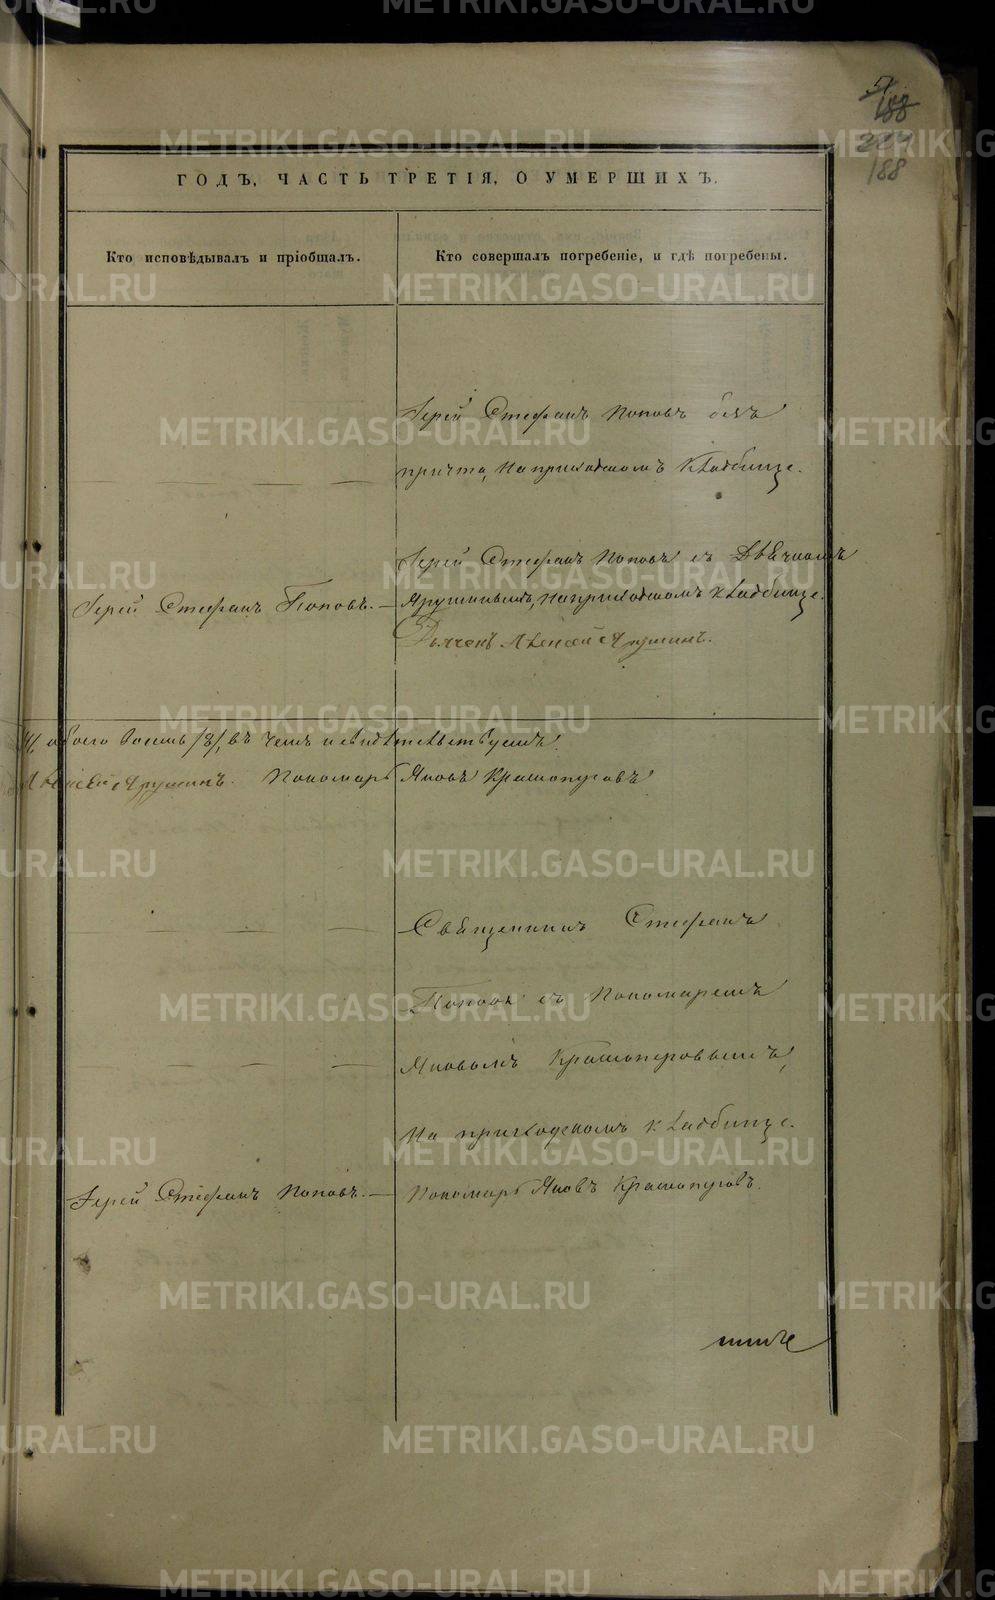 188
188
ГОДЪ, ЧАСТЬ ТРЕТІЯ, О УМЕРШИХЪ.
Кто исповѣдывалъ и пріобщалъ.
Кто совершалъ погребеніе, и гдѣ погребены.
Іерей Стефанъ Поповъ безъ
причта, на приходскомъ кладбище.
Іерей Стефанъ Поповъ съ Дьячкомъ
Іерей Стефанъ Поповъ.
Ярушинымъ, на приходскомъ кладбище.
Дьячекъ Алексѣй Ярушинъ.
обоего восемь /8/, въ чемъ и свидѣтельствуемъ:
Алексѣй Ярушинъ. Пономарь Яковъ Красноперовъ
Священникъ Стефанъ
Поповъ съ Пономаремъ
Яковомъ Красноперовымъ,
на приходскомъ кладбище.
Іерей Стефанъ Поповъ.
Пономарь Яковъ Красноперовъ.
METRIKI.GASO-URAL.RU